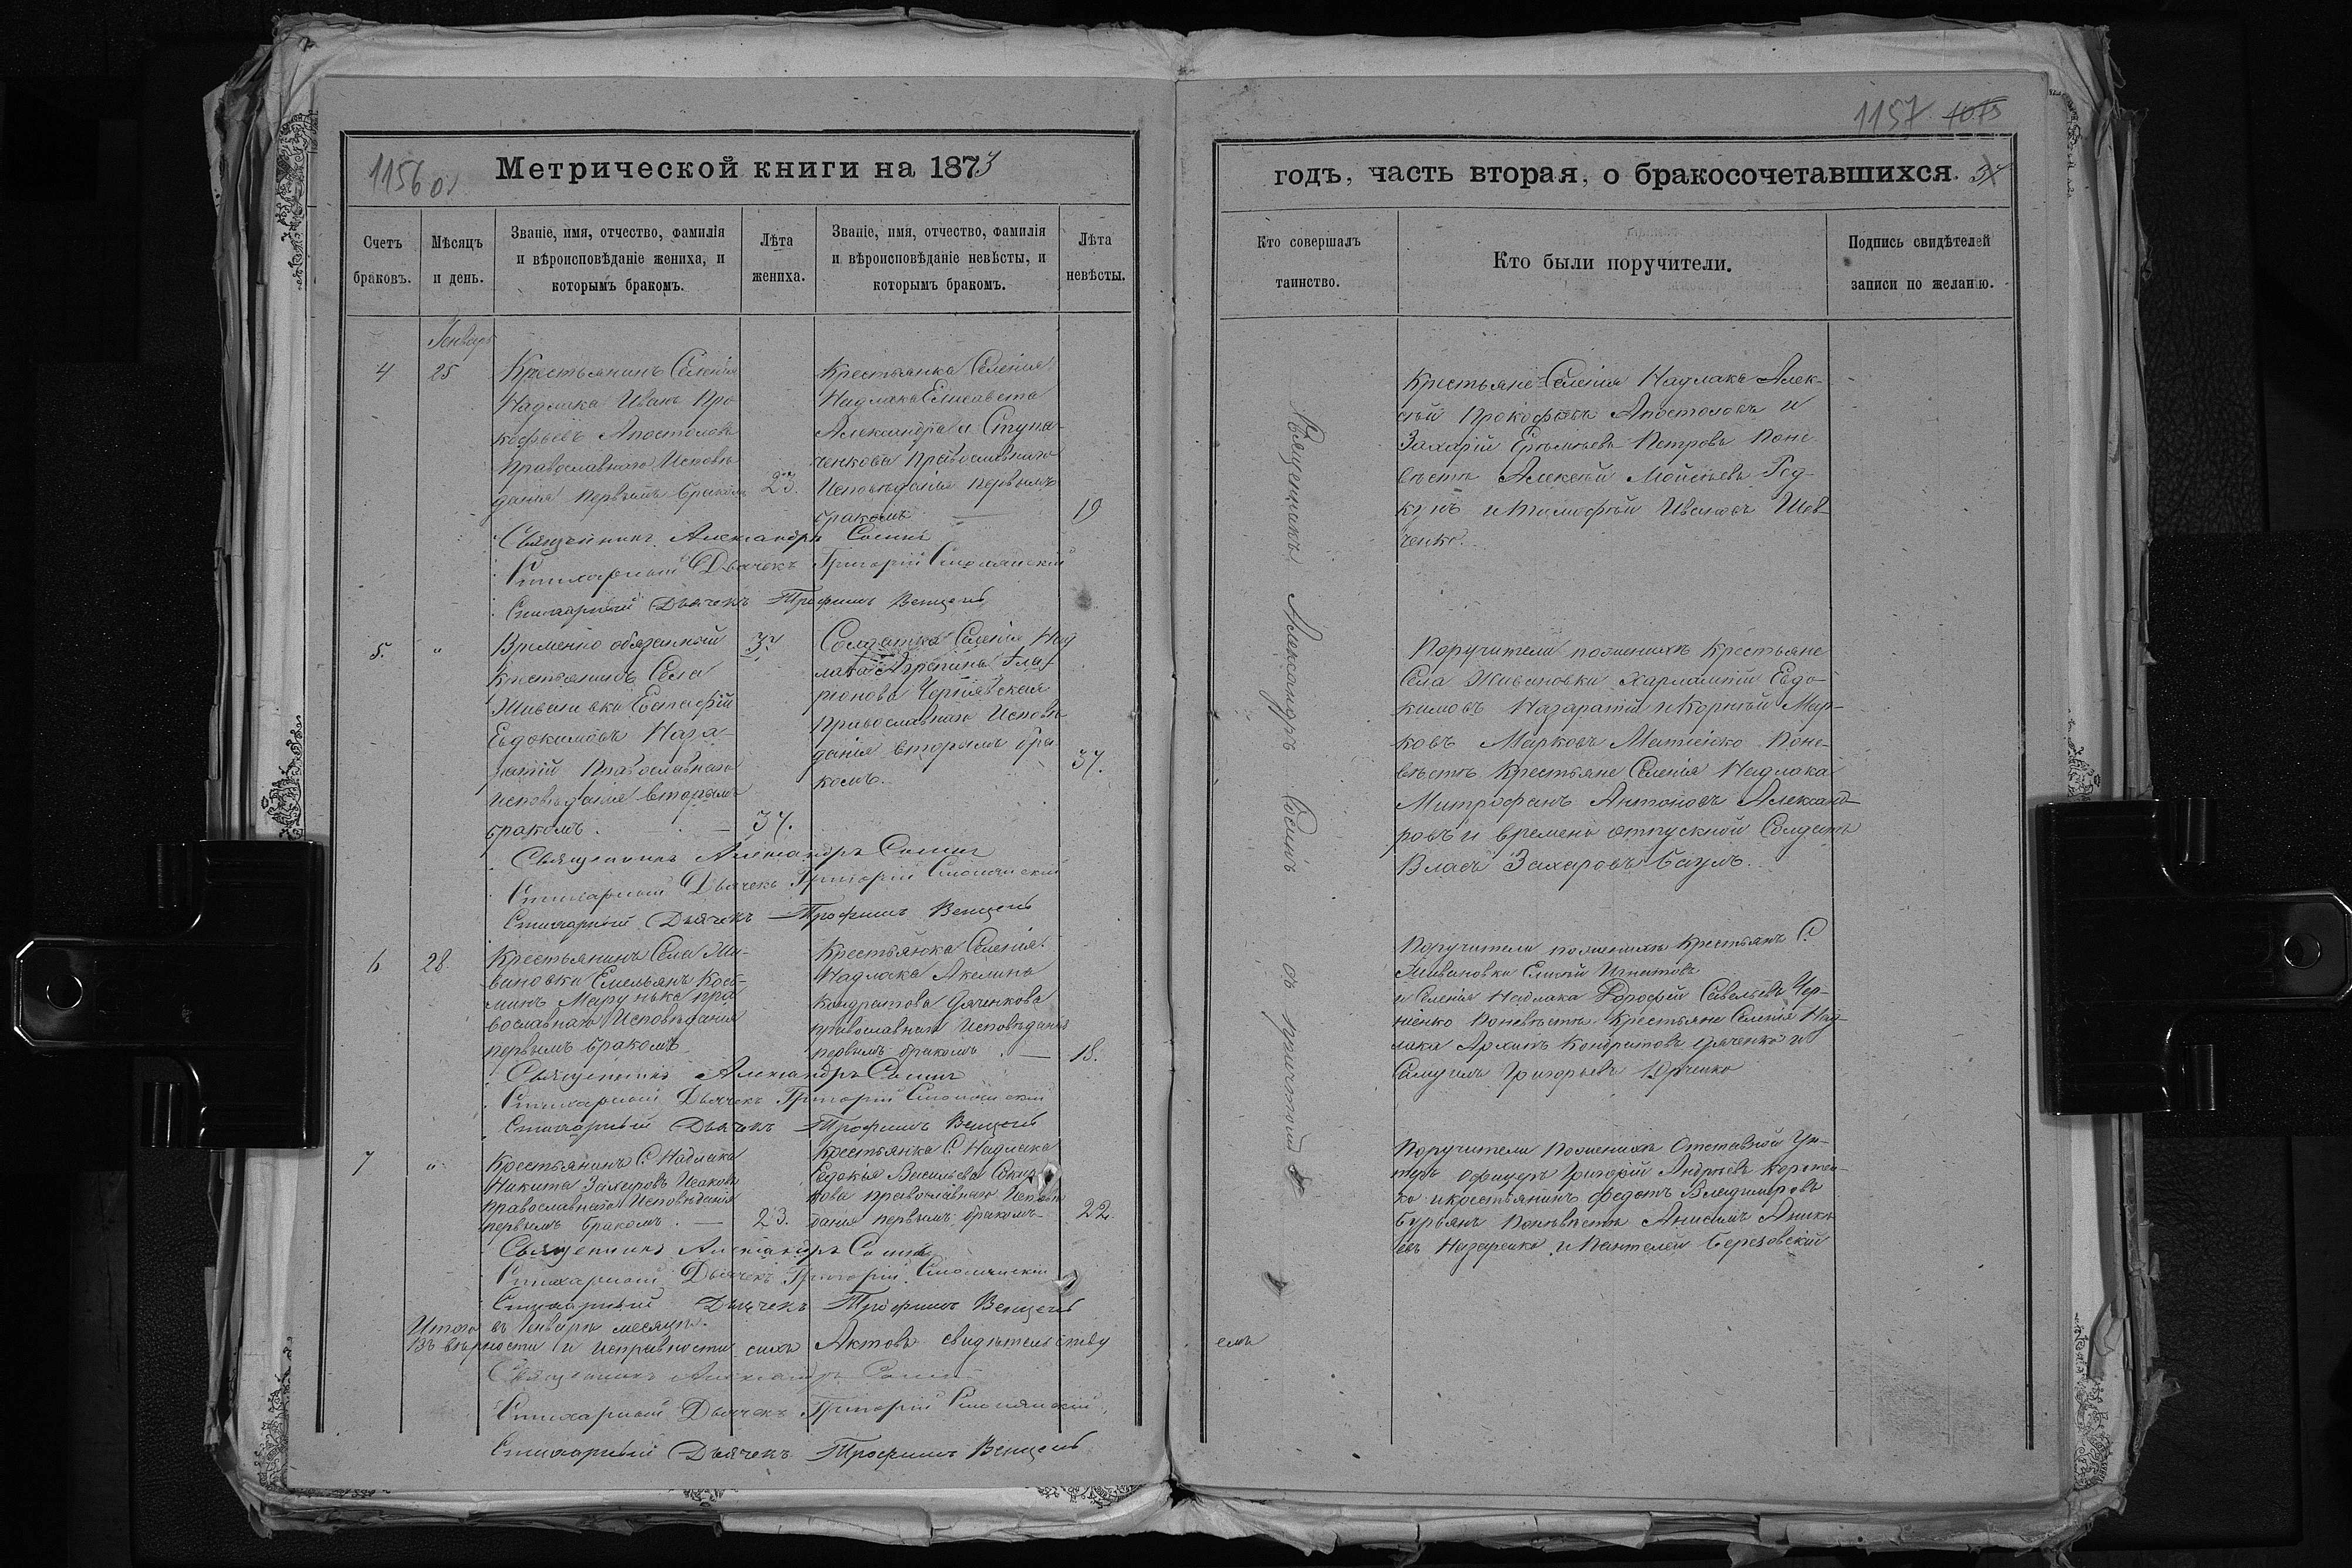 1156 об.
Метрической книги на 1873
Счетъ браковъ.
Мѣсяцъ и день.
Званіе, имя, отчество, фамилія и вѣроисповѣданіе жениха, и которымъ бракомъ.
Лѣта жениха.
Званіе, имя, отчество, фамилія и вѣроисповѣданіе невѣсты, и которымъ бракомъ.
Лѣта невѣсты.
Генварь
4
25
Крестьянинъ Селенія
Надлака Иванъ Про
кофьевъ Апостоловъ
Православнаго Исповѣ
данія первымъ бракомъ
23.
Крестьянка Селенія
Надлака Елисавета
Александрова Ступа-
ченкова Православнаго
Исповѣданія первымъ
бракомъ
19
Священникъ Александръ
Стихарный Дьячекъ Григорій
Стихарный Дьячекъ Трофимъ Венцель
5.
"
Временно обязанный
крестьянинъ Села
Живановки Евстафій
Евдокимовъ Наза-
ратій Православнаго
Исповѣданія вторымъ
бракомъ.
37.
Солдатка Селенія Над
лака Агрепина
Чернявская
Православнаго Исповѣ
данія вторымъ бра
комъ.
37.
Священникъ Александръ
Стихарный Дьячекъ Григорій
Стихарный Дьячекъ Трофимъ Венцель
6
28.
Крестьянинъ Села Жи-
вановки Емельянъ Козь-
минъ пра
вославнаго Исповѣданія
первымъ бракомъ
Крестьянка Селенія
Надлака Акелина
Кондратова Дяченкова
православнаго Исповѣданія
первымъ бракомъ.
18.
Священникъ Александръ
Стихарный Дьячекъ Григорій
Стихарный Дьячекъ Трофимъ Венцель
7
"
Крестьянинъ С. Надлака
Никита Захаровъ Исаковъ
православнаго Исповѣданія
первымъ бракомъ.
23.
Крестьянка С. Надлака
Евдокія Васильева
кова православнаго Исповѣ
данія первымъ бракомъ
22.
Священникъ Александръ
Стихарный Дьячекъ Григорій
Стихарный Дьячекъ Трофимъ Венцель
Итого въ Генварѣ месяцѣ.
Въ вѣрности и исправности сихъ Актовъ свидѣтельству
Священникъ Александръ
Стихарный Дьячекъ Григорій
Стихарный Дьячекъ Трофимъ Венцель
1157
годъ, часть вторая, о бракосочетавшихся.
Кто совершалъ таинство.
Кто были поручители.
Подпись свидѣтелей записи по желанію.
Священникъ Александръ съ причтомъ
Крестьяне Селенія Надлака Алек-
сѣй Прокофьевъ Апостоловъ и
Захарій Еремѣевъ Петровъ Поне
вѣстѣ Алексѣй Мойсѣевъ Год-
кунъ и Тимофѣй Ивановъ Шев-
ченко.
Поручители по женихѣ Крестьяне
Села Живановки Харлампій Евдо-
кимовъ Назаратій и Корнѣй Мар-
ковъ Марковъ Матіенко Поне-
вѣстѣ Крестьяне Селенія Надлака
Митрофанъ Антоновъ Александ-
ровъ и времено отпускной Солдатъ
Власъ Захаровъ Баумъ.
Поручители по женихѣ Крестьянъ С.
Живановки Елисѣй Игнатовъ
и Селенія Надлака Дорофѣй Савельевъ Чер-
ніенко Поневѣстѣ Крестьяне Селенія Над-
лака Архипъ Кондратовъ Дяченко и
Самуилъ Григорьевъ Юрченко
Поручители Поженихѣ Отставной Ун-
теръ офицеръ Григорій Андреевъ
ко и крестьянинъ Федотъ Владимировъ
Бурьянъ Поневѣстѣ Анисимъ
евъ Назаренко и Пантелей Березовскій
емъ